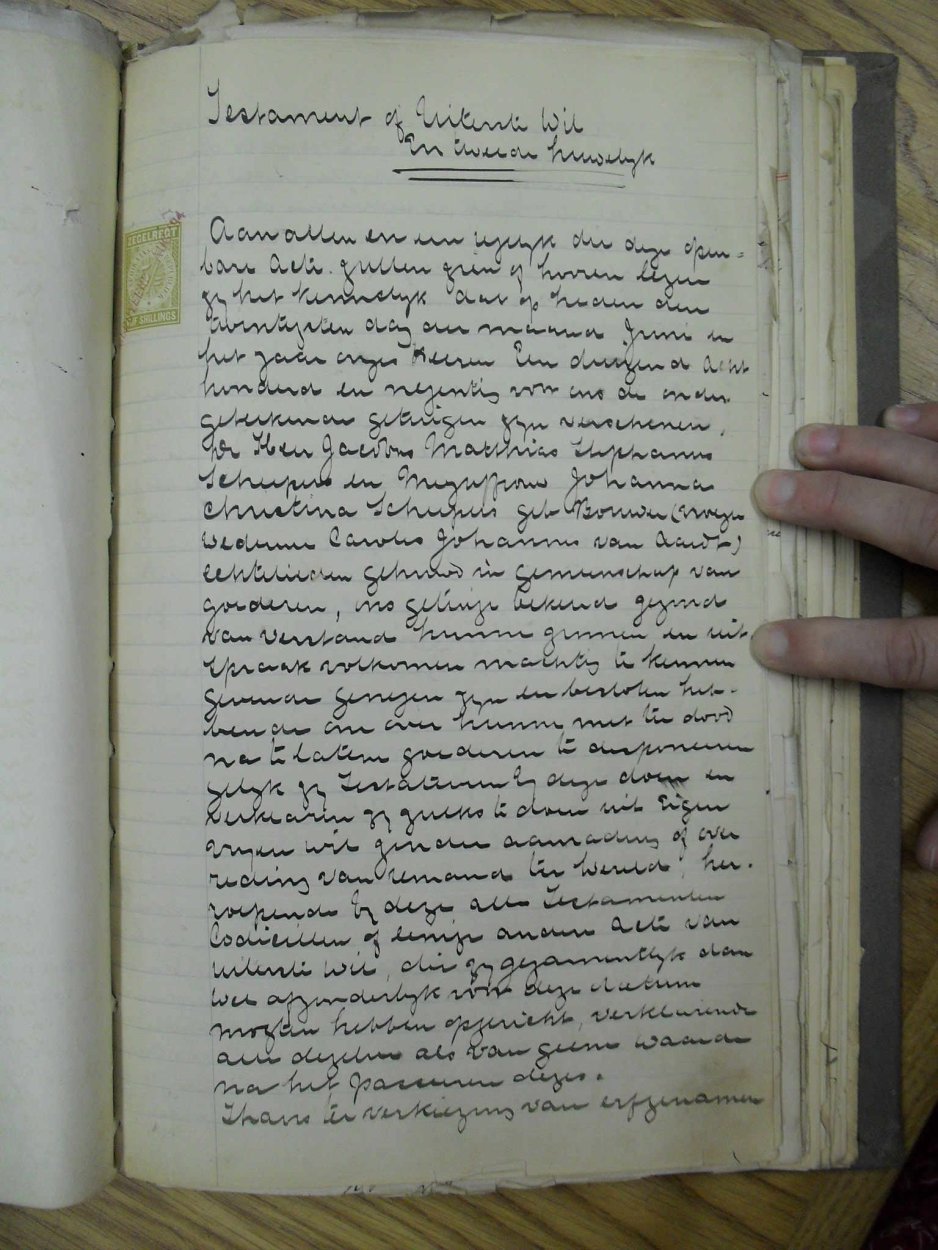 Testament of Uiterste Wil
In tweede huwelyk
ZEGELREGT
VYF SHILLINGS
Aan allen en een iegelyk die deze open=
bare Acte zullen zien of hooren lezen
zy het kennelyk dat op heden den
twintigsten dag der maand Juni in
het jaar onzes Heeren Een duizend Acht
honderd en negentig voor ons de onder
geteekende getuigen zyn verschenen,
De Heer Jacobus Matthias Stephanus
Scheepers en Mejuffrouw Johanna
Christina Scheepers geb Bouwer (vroeger
weduwe Carolus Johannes van Aardt)
echtelieden gehuwd in gemeenschap van
goederen, ons getuige bekend gezond
van verstand hunne zinnen en uit
spraak volkomen machtig te kennen
gevende genegen zyn en besloten heb-
bende om over hunne met ter dood
na te laten goederen te disponeeren
gelyk zy Testateuren by deze doen en
verklaren zy zulks te doen uit Eigen
vryen wil zonder aanrading of over
reding van iemand ter wereld, her-
roepende by deze alle Testamenten
Codicillen of eenige andere Acte van
uiterste wil, die zy gezamentlyk dan
wel afzonderlyk voor deze datum
mogten hebben opgericht, verklarende
alle dezelve als van geene waarde
na het passeeren dezes.
Thans ter verkiezing van erfgenamen